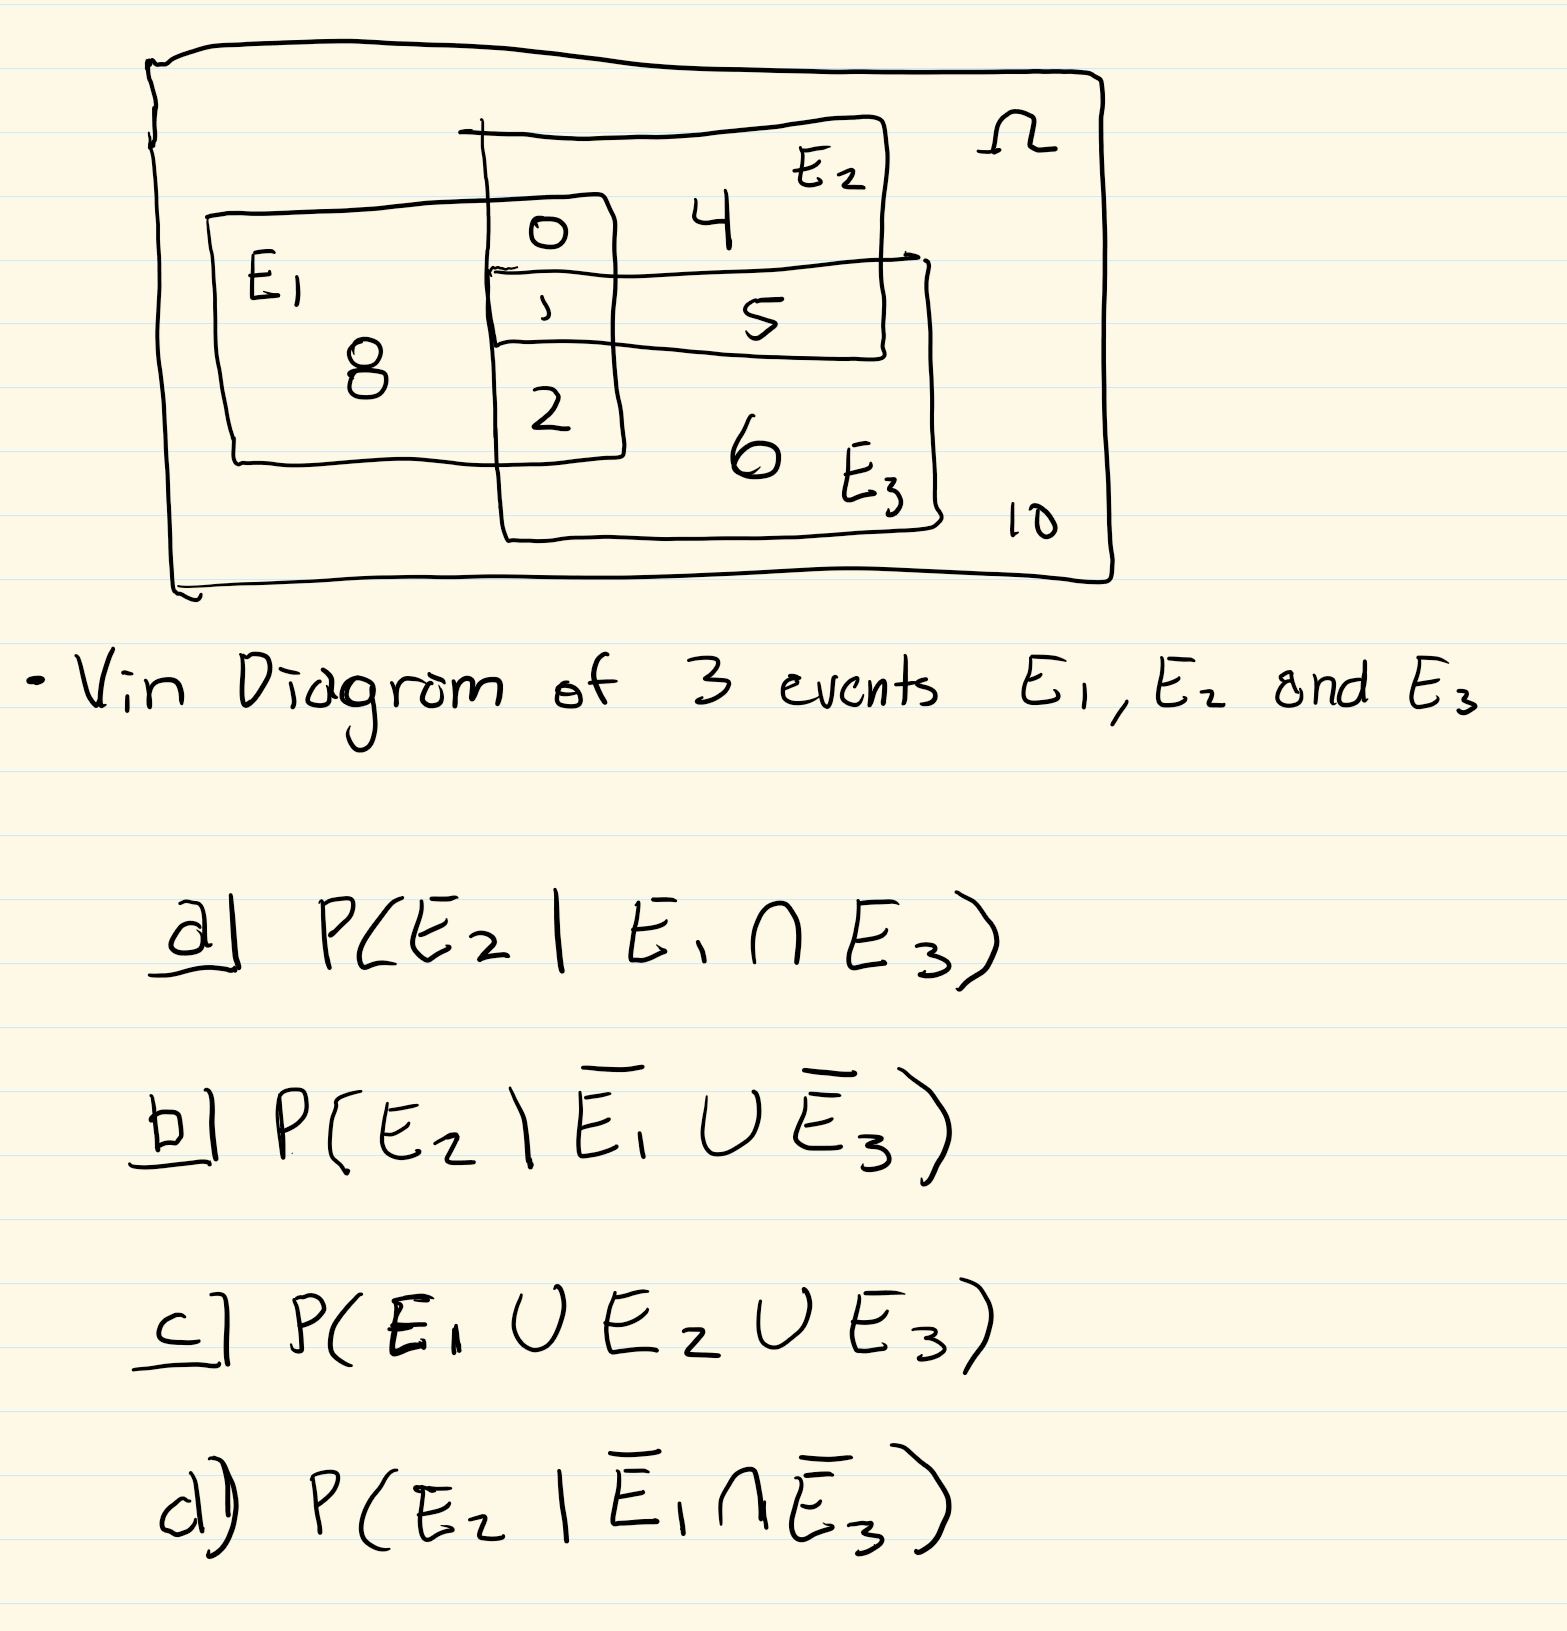 Ω
E₂
4
0
E₁
1
5
8
2
6
E₃
10
· Vin Diagram of 3 events E₁, E₂ and E₃
a) P(E₂ | E₁ ∩ E₃)
b) P(E₂ | E̅₁ ∪ E̅₃)
c) P(E₁ ∪ E₂ ∪ E₃)
d) P(E₂ | E̅₁ ∩ E̅₃)